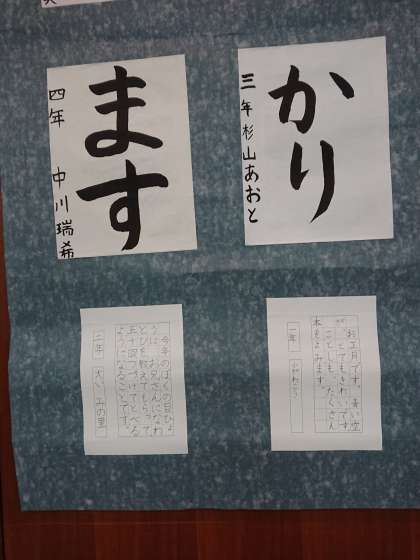 かり
三年 杉山あおと
ます
四年 中川瑞希
お正月です。青い空
とてもきれいです
ことしも、たくさん
本をよみます。
一年
今年のぼくの目ひょ
うは、お兄さんになわ
とびを教えてもらって
五十回つづけてとべる
ようになることです。
二年
みの里